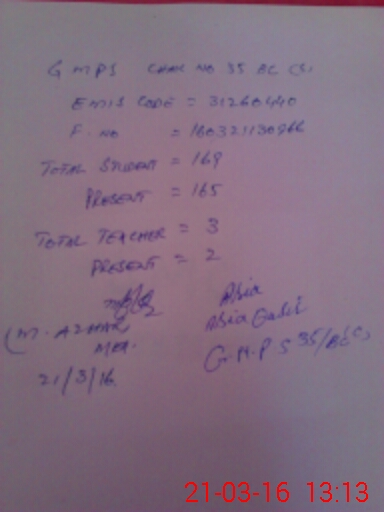 GMPS CHAK NO 35 BC (S)
EMIS CODE = 31260440
F. NO = 160321130966
TOTAL STUDENT = 169
PRESENT = 165
TOTAL TEACHER = 3
PRESENT = 2
Asia
(M. AZHAR
MEA.
21/3/16
G.M.P.S 35/BC(S)
21-03-16 13:13